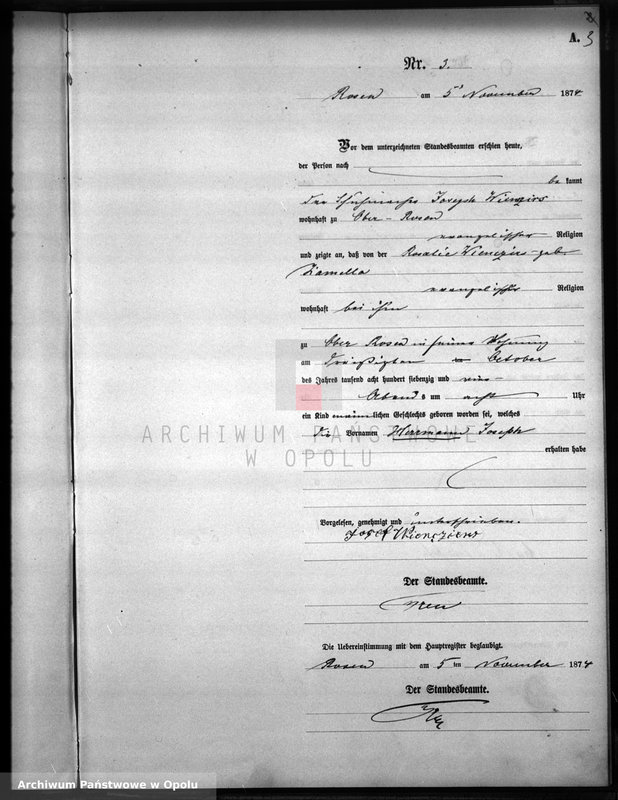 A. 3
Nr. 3.
Rosen am 5ten November 1874
Vor dem unterzeichneten Standesbeamten erschien heute,
der Person nach
be kannt
der Joseph
wohnhaft zu Ober-Rosen
evangelischer Religion
und zeigte an, daß von der Rosalie geb.
evangelischer Religion
wohnhaft bei ihm
zu Ober Rosen in seiner Wohnung
am dreißigten October
des Jahres tausend acht hundert siebenzig und vier
Abends um acht Uhr
ein Kind männlichen Geschlechts geboren worden sei, welches
die Vornamen Herrmann Joseph
erhalten habe
ARCHIWUM PAŃSTWOWE
W OPOLU
Vorgelesen, genehmigt und unterschrieben.
Josef
Der Standesbeamte.
Die Uebereinstimmung mit dem Hauptregister beglaubigt.
Rosen am 5ten November 1874
Der Standesbeamte.
Archiwum Państwowe w Opolu